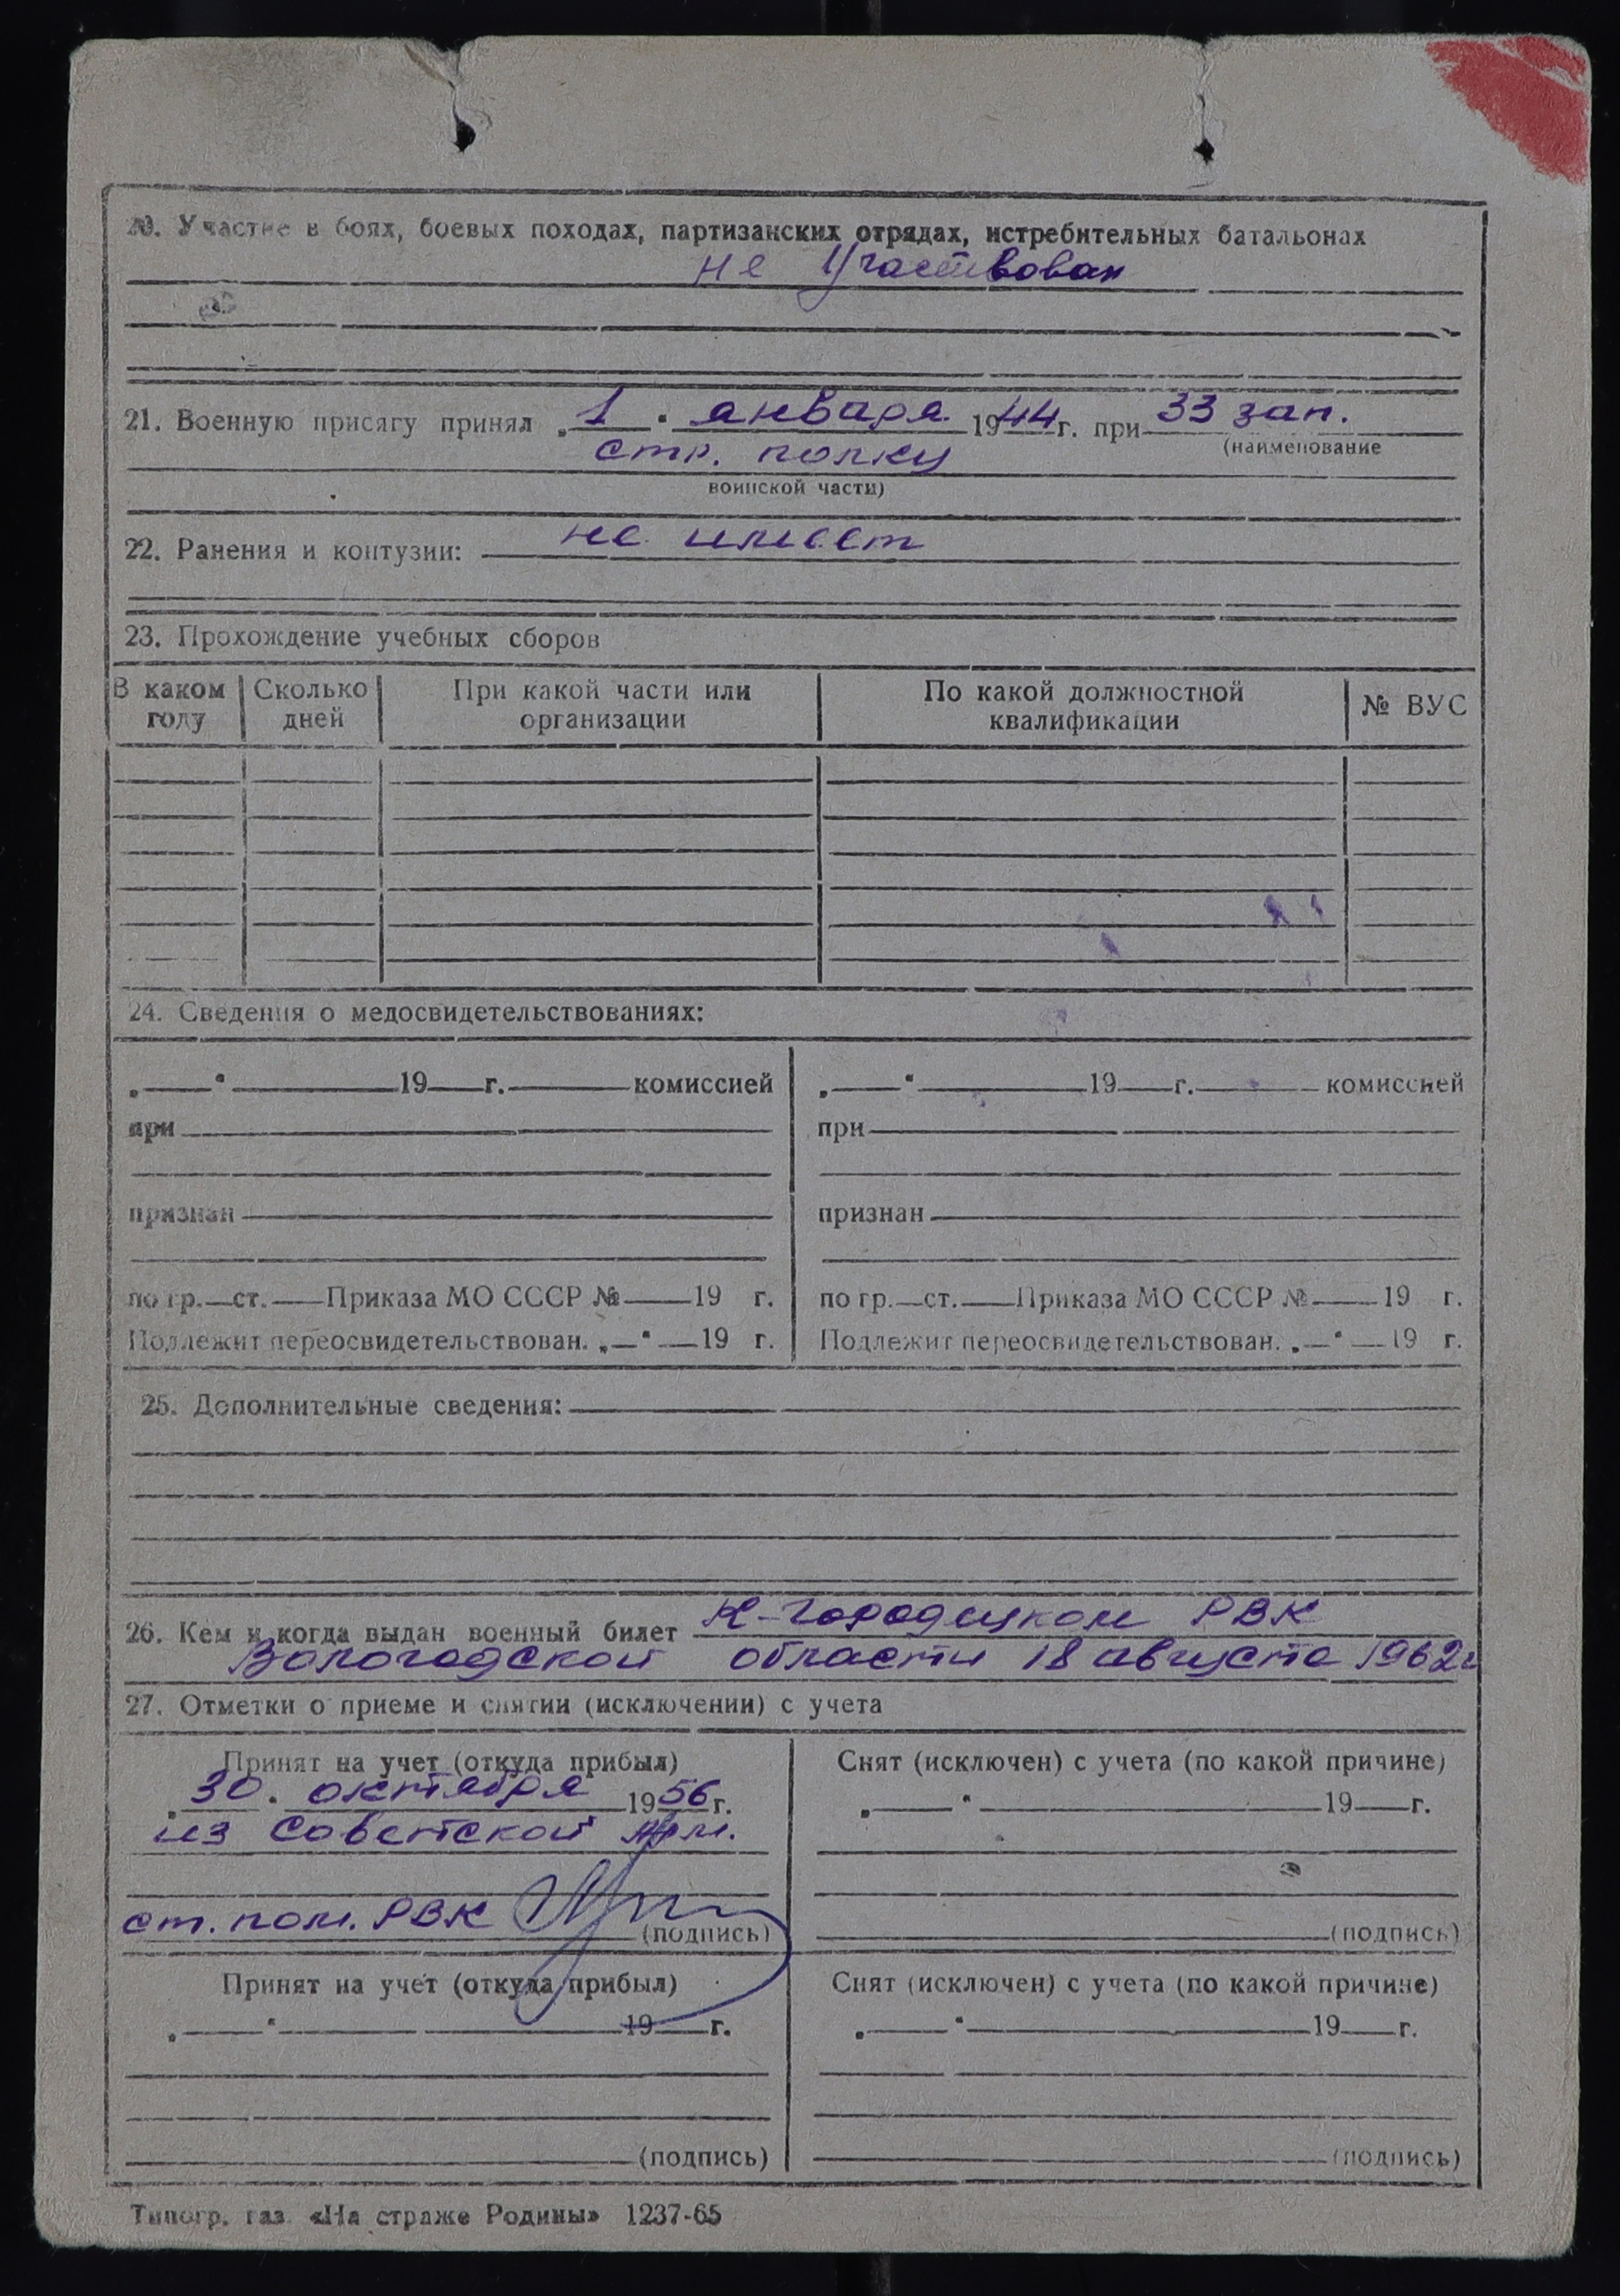 20. Участие в боях, боевых походах, партизанских отрядах, истребительных батальонах
не участвовал
21. Военную присягу принял „1“ января 1944 г. при 33 зап.
(наименование
стр. полку
воинской части)
22. Ранения и контузии: не имеет
23. Прохождение учебных сборов
В каком году | Сколько дней | При какой части или организации | По какой должностной квалификации | № ВУС
24. Сведения о медосвидетельствованиях:
„ “ 19 г. комиссией | „ “ 19 г. комиссией
при | при
признан | признан
по гр. ст. Приказа МО СССР № 19 г. | по гр. ст. Приказа МО СССР № 19 г.
Подлежит переосвидетельствован. „ “ 19 г. | Подлежит переосвидетельствован. „ “ 19 г.
25. Дополнительные сведения:
26. Кем и когда выдан военный билет К-Городецком РВК
Вологодской области 18 августа 1962 г
27. Отметки о приеме и снятии (исключении) с учета
Принят на учет (откуда прибыл) | Снят (исключен) с учета (по какой причине)
„30“ октября 1956 г. | „ “ 19 г.
из Советской Арм.
ст. пом. РВК (подпись) | (подпись)
Принят на учет (откуда прибыл) | Снят (исключен) с учета (по какой причине)
„ “ 19 г. | „ “ 19 г.
(подпись) | (подпись)
Типогр. газ. «На страже Родины» 1237-65